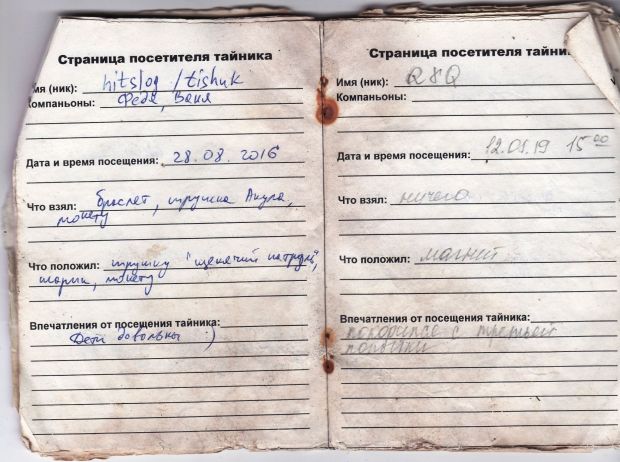 Страница посетителя тайника
Имя (ник): hitslog / tishuk
Компаньоны: Федя, Ваня
Дата и время посещения: 28.08.2016
Что взял: браслет, игрушка Акула,
монету
Что положил: игрушку "щенячий патруль",
шарик, монету
Впечатления от посещения тайника:
Дети довольны )
Страница посетителя тайника
Имя (ник):
Компаньоны:
Дата и время посещения: 12.01.19 15 00
Что взял: ничего
Что положил: магнит
Впечатления от посещения тайника:
поддался с третьей
попытки